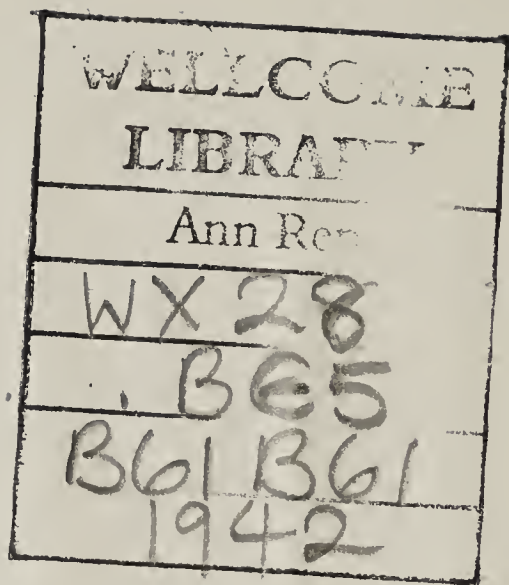 WELLCOME
LIBRARY
Ann Rep
WX28
.BE5
B61B61
1942